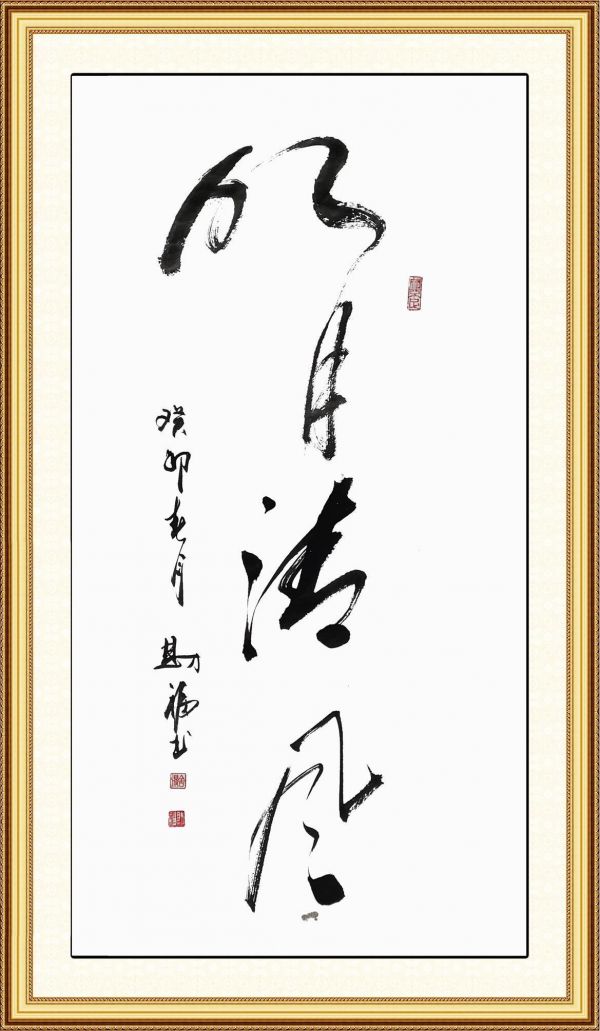 明月清风
癸卯春月
勘福书